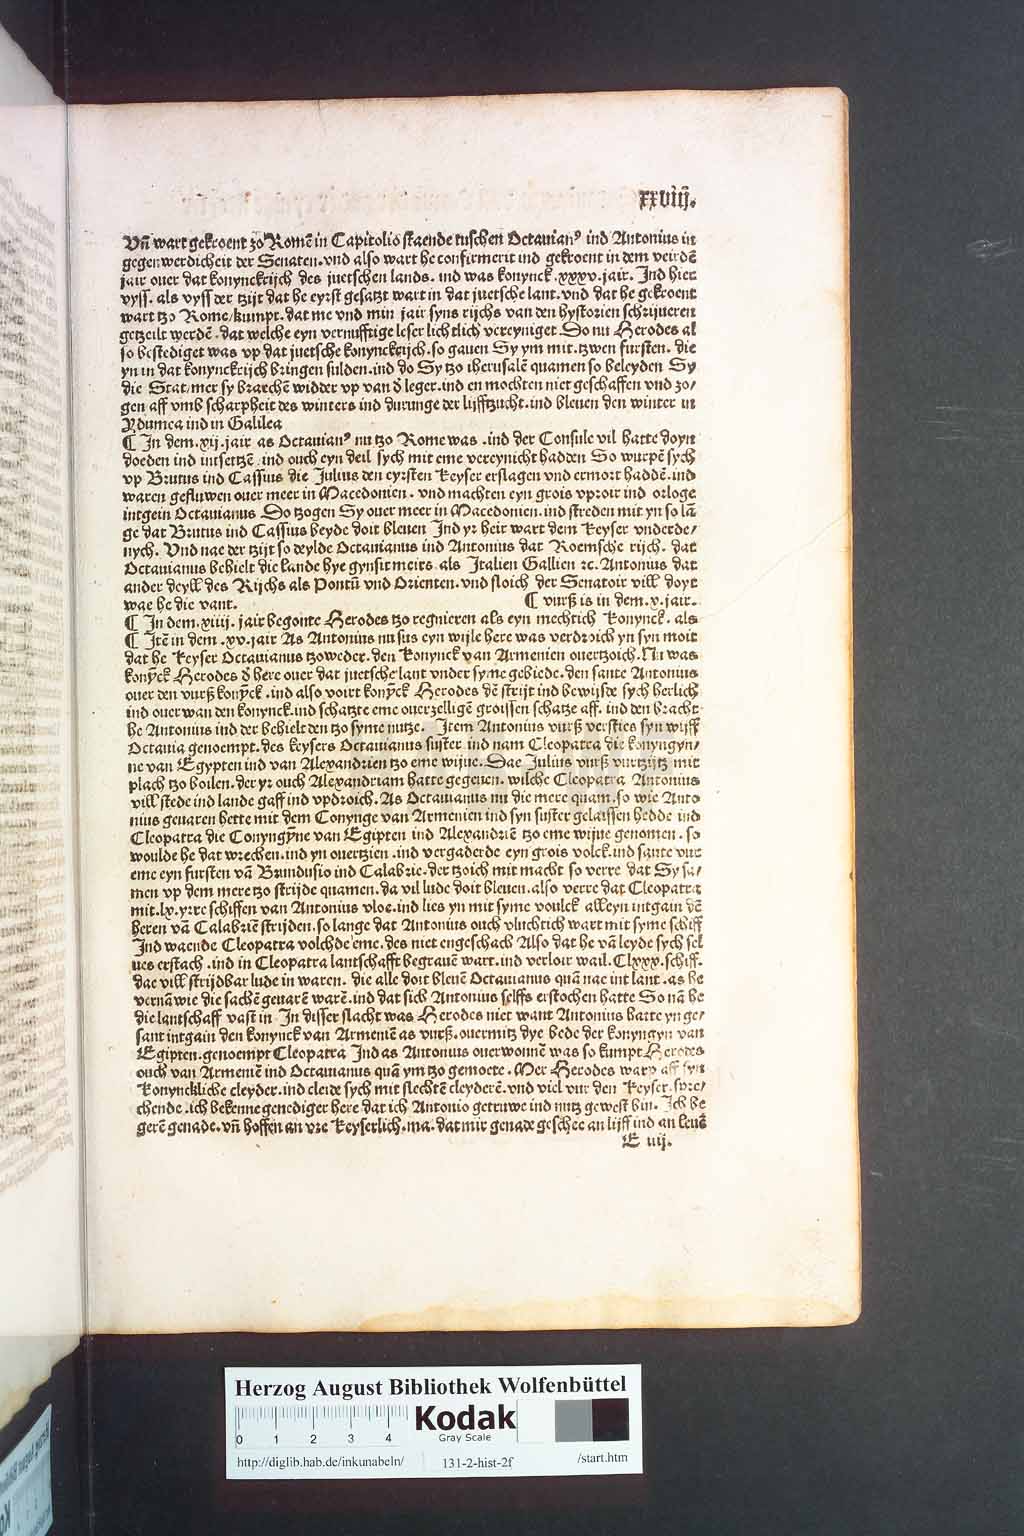 xxviij.
Vn̄ wart gekroent zo Romē in Capitolio staende tuschen Octauianꝰ ind Antonius in
gegenwerdicheit der Senaten. vnd also wart he confirmerit ind gekroent in dem veirdē
jair ouer dat konynckrijch des juetschen lands. ind was konynck .xxxv. jair. Ind hier
vyss. als vyss der tzijt dat he eyrst gesatzt wart in dat juetsche lant. vnd dat he gekroent
wart tzo Rome/kumpt. dat me vnd min jair syns rijchs van den hystorien schrijueren
getzeilt werdē. dat welche eyn vernufftige leser lichtlich vereyniget. So nu Herodes al
so bestediget was vp dat juetsche konynckrijch. so gauen Sy ym mit. tzwen fursten. die
yn in dat konynckrijch bringen sulden. ind do Sy tzo iherusalē quamen so beleyden Sy
die Stat/mer sy braechē widder vp van ð leger. ind en mochten niet geschaffen vnd zo/
gen aff vmb scharpheit des winters ind durunge der lijfftzucht. ind bleuen den winter in
Ydumea ind in Galilea
¶ In dem .xij. jair as Octauianꝰ nu tzo Rome was . ind der Consule vil hatte doyn
doeden ind intsettzē . ind ouch eyn deil sych mit eme vereynicht hadden So wurpē sych
vp Brutus ind Cassius die Julius den eyrsten keyser erslagen vnd ermort haddē. ind
waren gefluwen ouer meer in Macedonien . vnd machten eyn grois vproir ind orloge
intgein Octauianus Do tzogen Sy ouer meer in Macedonien. ind streden mit yn so lā
ge dat Brutus ind Cassius beyde doit bleuen Ind yr heir wart dem keyser vnderde/
nych. Vnd nae der tzijt so deylde Octauianus ind Antonius dat Roemsche rijch. dat
Octauianus behielt die lande hye gynsit meirs als Italien Gallien ꝛc. Antonius dat
ander deyll des Rijchs als Pontū vnd Orienten. vnd floich der Senatoir vill doyt
wae he die vant. ¶ vurß is in dem .v. jair.
¶ In dem .xiiij. jair begonte Herodes tzo regnieren als eyn mechtich konynck. als
¶ Itē in dem .xv. jair As Antonius nu sus eyn wijle here was verdroich yn syn moit
dat he keyser Octauianus tzoweder. den konynck van Armenien ouertzoich. Nu was
konȳck Herodes ð here ouer dat juetsche lant vnder syme gebiede. den sante Antonius
ouer den vurß konȳck . ind also voirt konȳck Herodes dē strijt ind bewijsde sych herlich
ind ouer wan den konynck. ind schatzte eme ouerzelligē groissen schatze aff. ind den bracht
he Antonius ind der behielt den tzo syme nutze. Item Antonius vurß versties syn wijff
Octauia genoempt. des keysers Octauianus suster ind nam Cleopatra die konyngyn/
ne van Egypten ind van Alexandrien tzo eme wijue. Dae Julius vurß vurtzijtz mit
plach tzo boilen. der yr ouch Alexandriam hatte gegeuen. wilche Cleopatra Antonius
vill stede ind lande gaff ind vpdroich. As Octauianus nu die mere quam. so wie Anto
nius geuaren hette mit dem Conynge van Armenien ind syn suster gelaissen hedde ind
Cleopatra die Conyngȳne van Egipten ind Alexandriē tzo eme wijue genomen. so
woulde he dat wrechen. ind yn ouertzien . ind vergaderde eyn grois volck. ind sante vur
eme eyn fursten vā Brundusio ind Calabrie. der tzoich mit macht so verre dat Sy sa/
men vp dem mere tzo strijde quamen. da vil lude doit bleuen. also verre dat Cleopatra
mit. lx. yrre schiffen van Antonius vloe. ind lies yn mit syme voulck alleyn intgain dē
heren vā Calabriē strijden. so lange dat Antonius ouch vluchtich wart mit syme schiff
Ind waende Cleopatra volchde eme. des niet engeschach Also dat he vā leyde sych sel
ues erstach . ind in Cleopatra lantschafft begrauē wart. ind verloir wail. Clxxx. schiff.
dae vill strijdbar lude in waren. die alle doit bleuē Octauianus quā nae int lant. as he
vernā wie die sachē geuarē warē. ind dat sich Antonius selffs erstochen hatte So nā he
die lantschaff vast in In disser slacht was Herodes niet want Antonius hatte yn ge/
sant intgain den konynck van Armeniē as vurß. ouermitz dye bede der konyngyn van
Egipten. genoempt Cleopatra Ind as Antonius ouerwonnē was so kumpt Herodes
ouch van Armeniē ind Octauianus quā ym tzo gemoete. Mer Herodes warp aff syn
konynckliche cleyder. ind cleide sych mit slechtē cleyderē. vnd viel vur den keyser spre/
chende. ich bekenne genediger here dat ich Antonio getruwe ind nutz gewest bin. Ich be
gerē genade. vn̄ hoffen an vre keyserlich. ma. dat mir genade geschee an lijff ind an leuē
E iiij.
Herzog August Bibliothek Wolfenbüttel
0 1 2 3 4
Kodak
Gray Scale
http://diglib.hab.de/inkunabeln/ 131-2-hist-2f /start.htm